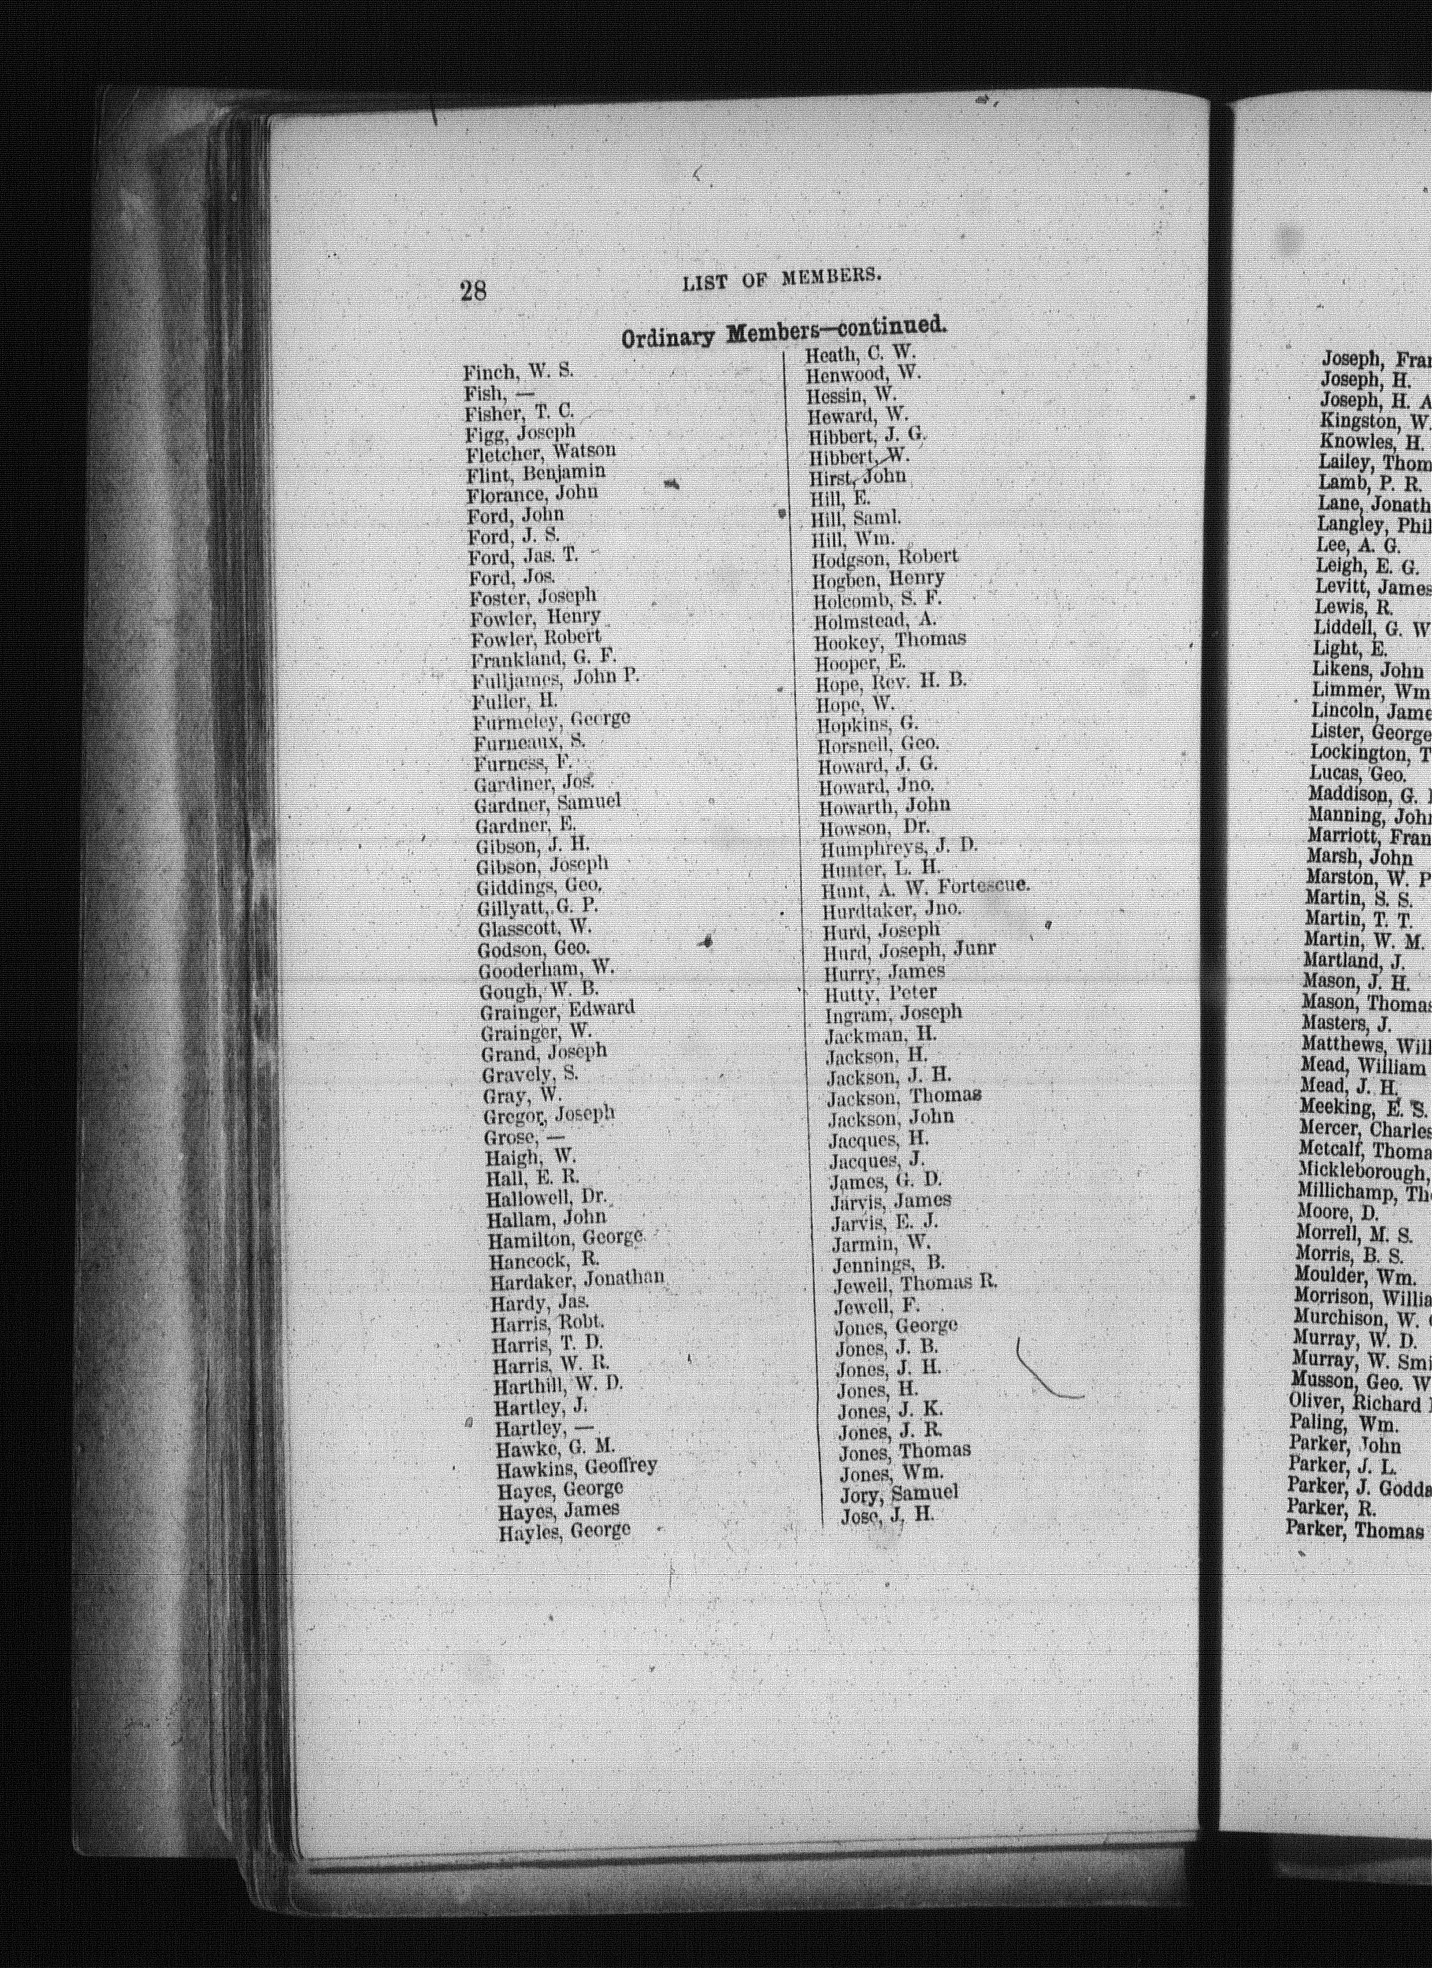 28
LIST OF MEMBERS.
Ordinary Members—continued.
Finch, W. S.
Fish, —
Fisher, T. C.
Figg, Joseph
Fletcher, Watson
Flint, Benjamin
Florance, John
Ford, John
Ford, J. S.
Ford, Jas. T.
Ford, Jos.
Foster, Joseph
Fowler, Henry
Fowler, Robert
Frankland, G. F.
Fulljames, John P.
Fuller, H.
Furmeley, George
Furneaux, S.
Furness, F.
Gardiner, Jos.
Gardner, Samuel
Gardner, E.
Gibson, J. H.
Gibson, Joseph
Giddings, Geo.
Gillyatt, G. P.
Glasscott, W.
Godson, Geo.
Gooderham, W.
Gough, W. B.
Grainger, Edward
Grainger, W.
Grand, Joseph
Gravely, S.
Gray, W.
Gregor, Joseph
Grose, —
Haigh, W.
Hall, E. R.
Hallowell, Dr.
Hallam, John
Hamilton, George
Hancock, R.
Hardaker, Jonathan
Hardy, Jas.
Harris, Robt.
Harris, T. D.
Harris, W. R.
Harthill, W. D.
Hartley, J.
Hartley, —
Hawke, G. M.
Hawkins, Geoffrey
Hayes, George
Hayes, James
Hayles, George
Heath, C. W.
Henwood, W.
Hessin, W.
Heward, W.
Hibbert, J. G.
Hibbert, W.
Hirst, John
Hill, E.
Hill, Saml.
Hill, Wm.
Hodgson, Robert
Hogben, Henry
Holcomb, S. F.
Holmstead, A.
Hookey, Thomas
Hooper, E.
Hope, Rev. H. B.
Hope, W.
Hopkins, G.
Horsnell, Geo.
Howard, J. G.
Howard, Jno.
Howarth, John
Howson, Dr.
Humphreys, J. D.
Hunter, L. H.
Hunt, A. W. Fortescue.
Hurdtaker, Jno.
Hurd, Joseph
Hurd, Joseph, Junr
Hurry, James
Hutty, Peter
Ingram, Joseph
Jackman, H.
Jackson, H.
Jackson, J. H.
Jackson, Thomas
Jackson, John
Jacques, H.
Jacques, J.
James, G. D.
Jarvis, James
Jarvis, E. J.
Jarmin, W.
Jennings, B.
Jewell, Thomas R.
Jewell, F.
Jones, George
Jones, J. B.
Jones, J. H.
Jones, H.
Jones, J. K.
Jones, J. R.
Jones, Thomas
Jones, Wm.
Jory, Samuel
Jose, J. H.
Joseph, Fran
Joseph, H.
Joseph, H. A
Kingston, W.
Knowles, H.
Lailey, Thom
Lamb, P. R.
Lane, Jonath
Langley, Phil
Lee, A. G.
Leigh, E. G.
Levitt, James
Lewis, R.
Liddell, G. W
Light, E.
Likens, John
Limmer, Wm
Lincoln, Jame
Lister, George
Lockington, T
Lucas, Geo.
Maddison, G.
Manning, John
Marriott, Fran
Marsh, John
Marston, W. P
Martin, S. S.
Martin, T. T.
Martin, W. M.
Martland, J.
Mason, J. H.
Mason, Thomas
Masters, J.
Matthews, Will
Mead, William
Mead, J. H.
Meeking, E. S.
Mercer, Charles
Metcalf, Thoma
Mickleborough,
Millichamp, Tho
Moore, D.
Morrell, M. S.
Morris, B. S.
Moulder, Wm.
Morrison, Willia
Murchison, W.
Murray, W. D.
Murray, W. Smi
Musson, Geo. W
Oliver, Richard
Paling, Wm.
Parker, John
Parker, J. L.
Parker, J. Godda
Parker, R.
Parker, Thomas